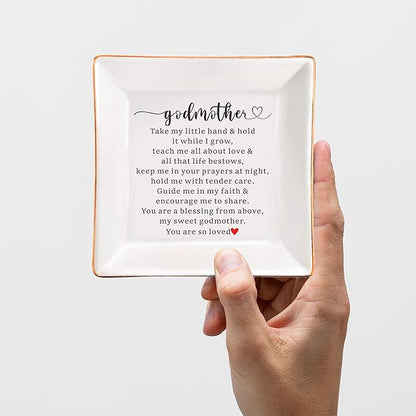 godmother
Take my little hand & hold
it while I grow,
teach me all about love &
all that life bestows,
keep me in your prayers at night,
hold me with tender care.
Guide me in my faith &
encourage me to share.
You are a blessing from above,
my sweet godmother.
You are so loved♥